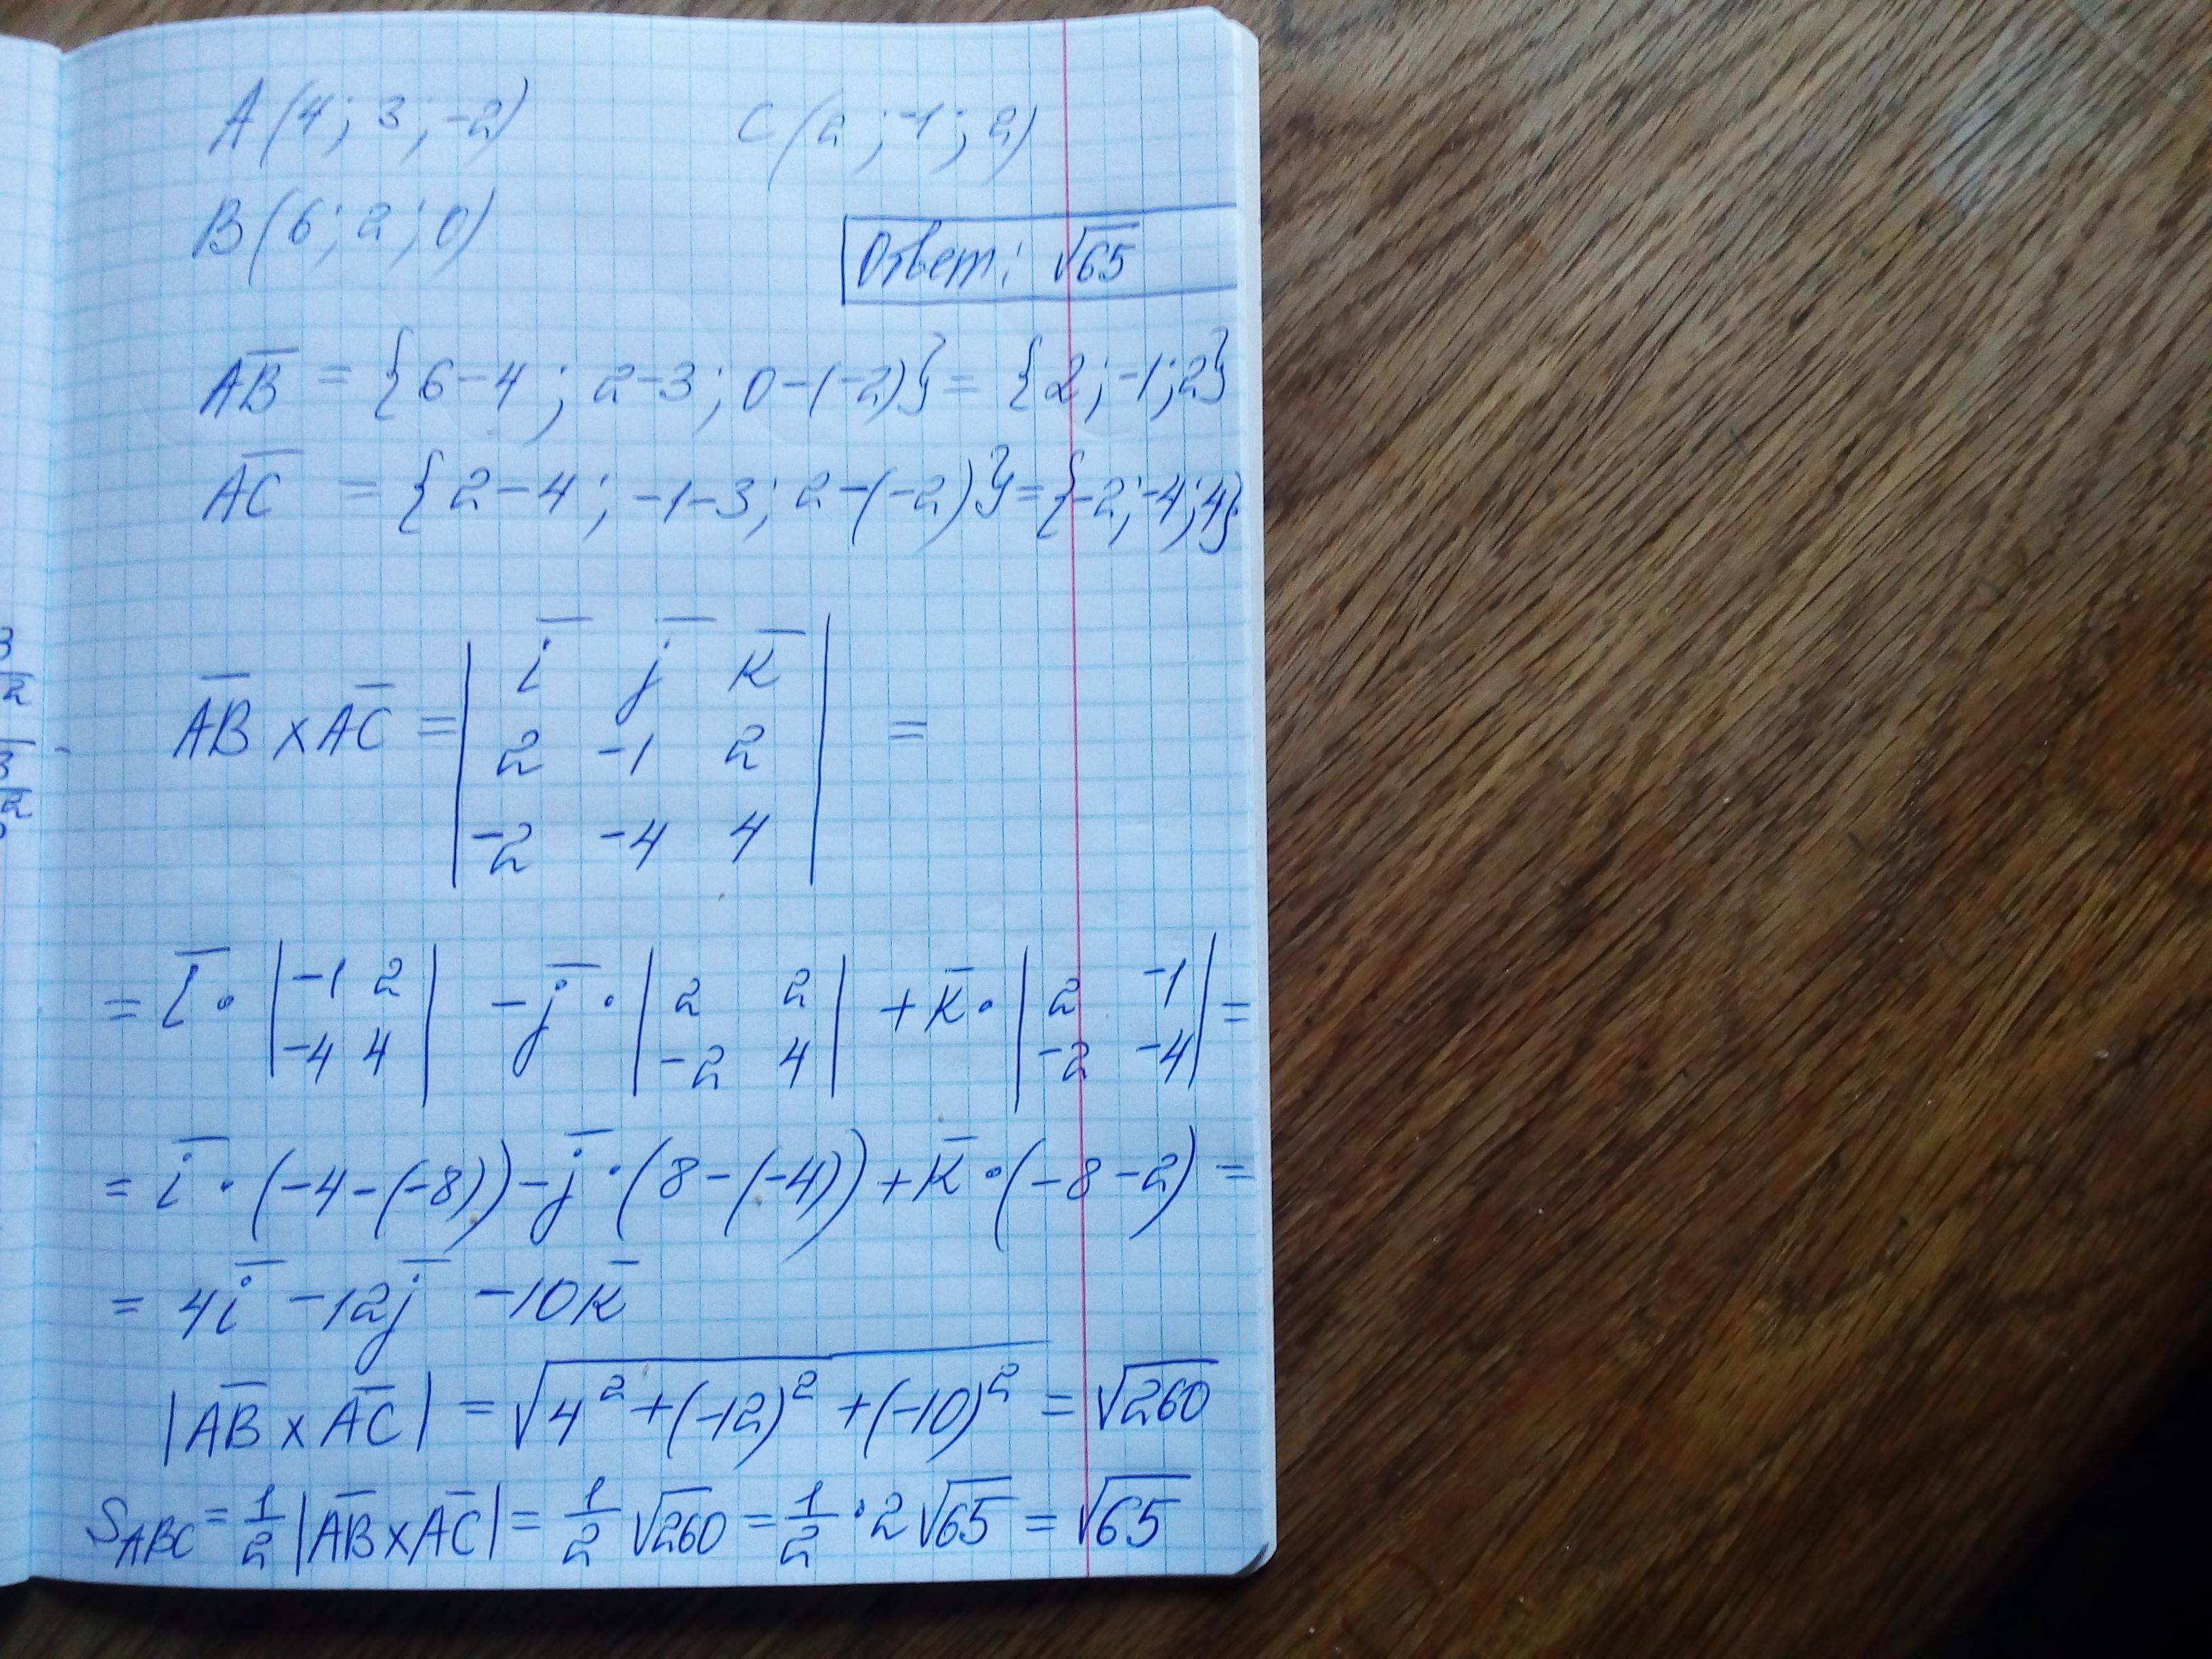 A(4; 3; -2) C(2; -1; 2)
B(6; 2; 0)
Ответ: √65
AB = {6-4; 2-3; 0-(-2)} = {2; -1; 2}
AC = {2-4; -1-3; 2-(-2)} = {-2; -4; 4}
i j k
AB × AC = | 2 -1 2 | =
-2 -4 4
= i · | -1 2 | - j · | 2 2 | + k · | 2 -1 | =
-4 4 -2 4 -2 -4
= i · (-4-(-8)) - j · (8-(-4)) + k · (-8-2) =
= 4i - 12j - 10k
|AB × AC| = √4² + (-12)² + (-10)² = √260
S ABC = 1/2 |AB × AC| = 1/2 √260 = 1/2 · 2√65 = √65